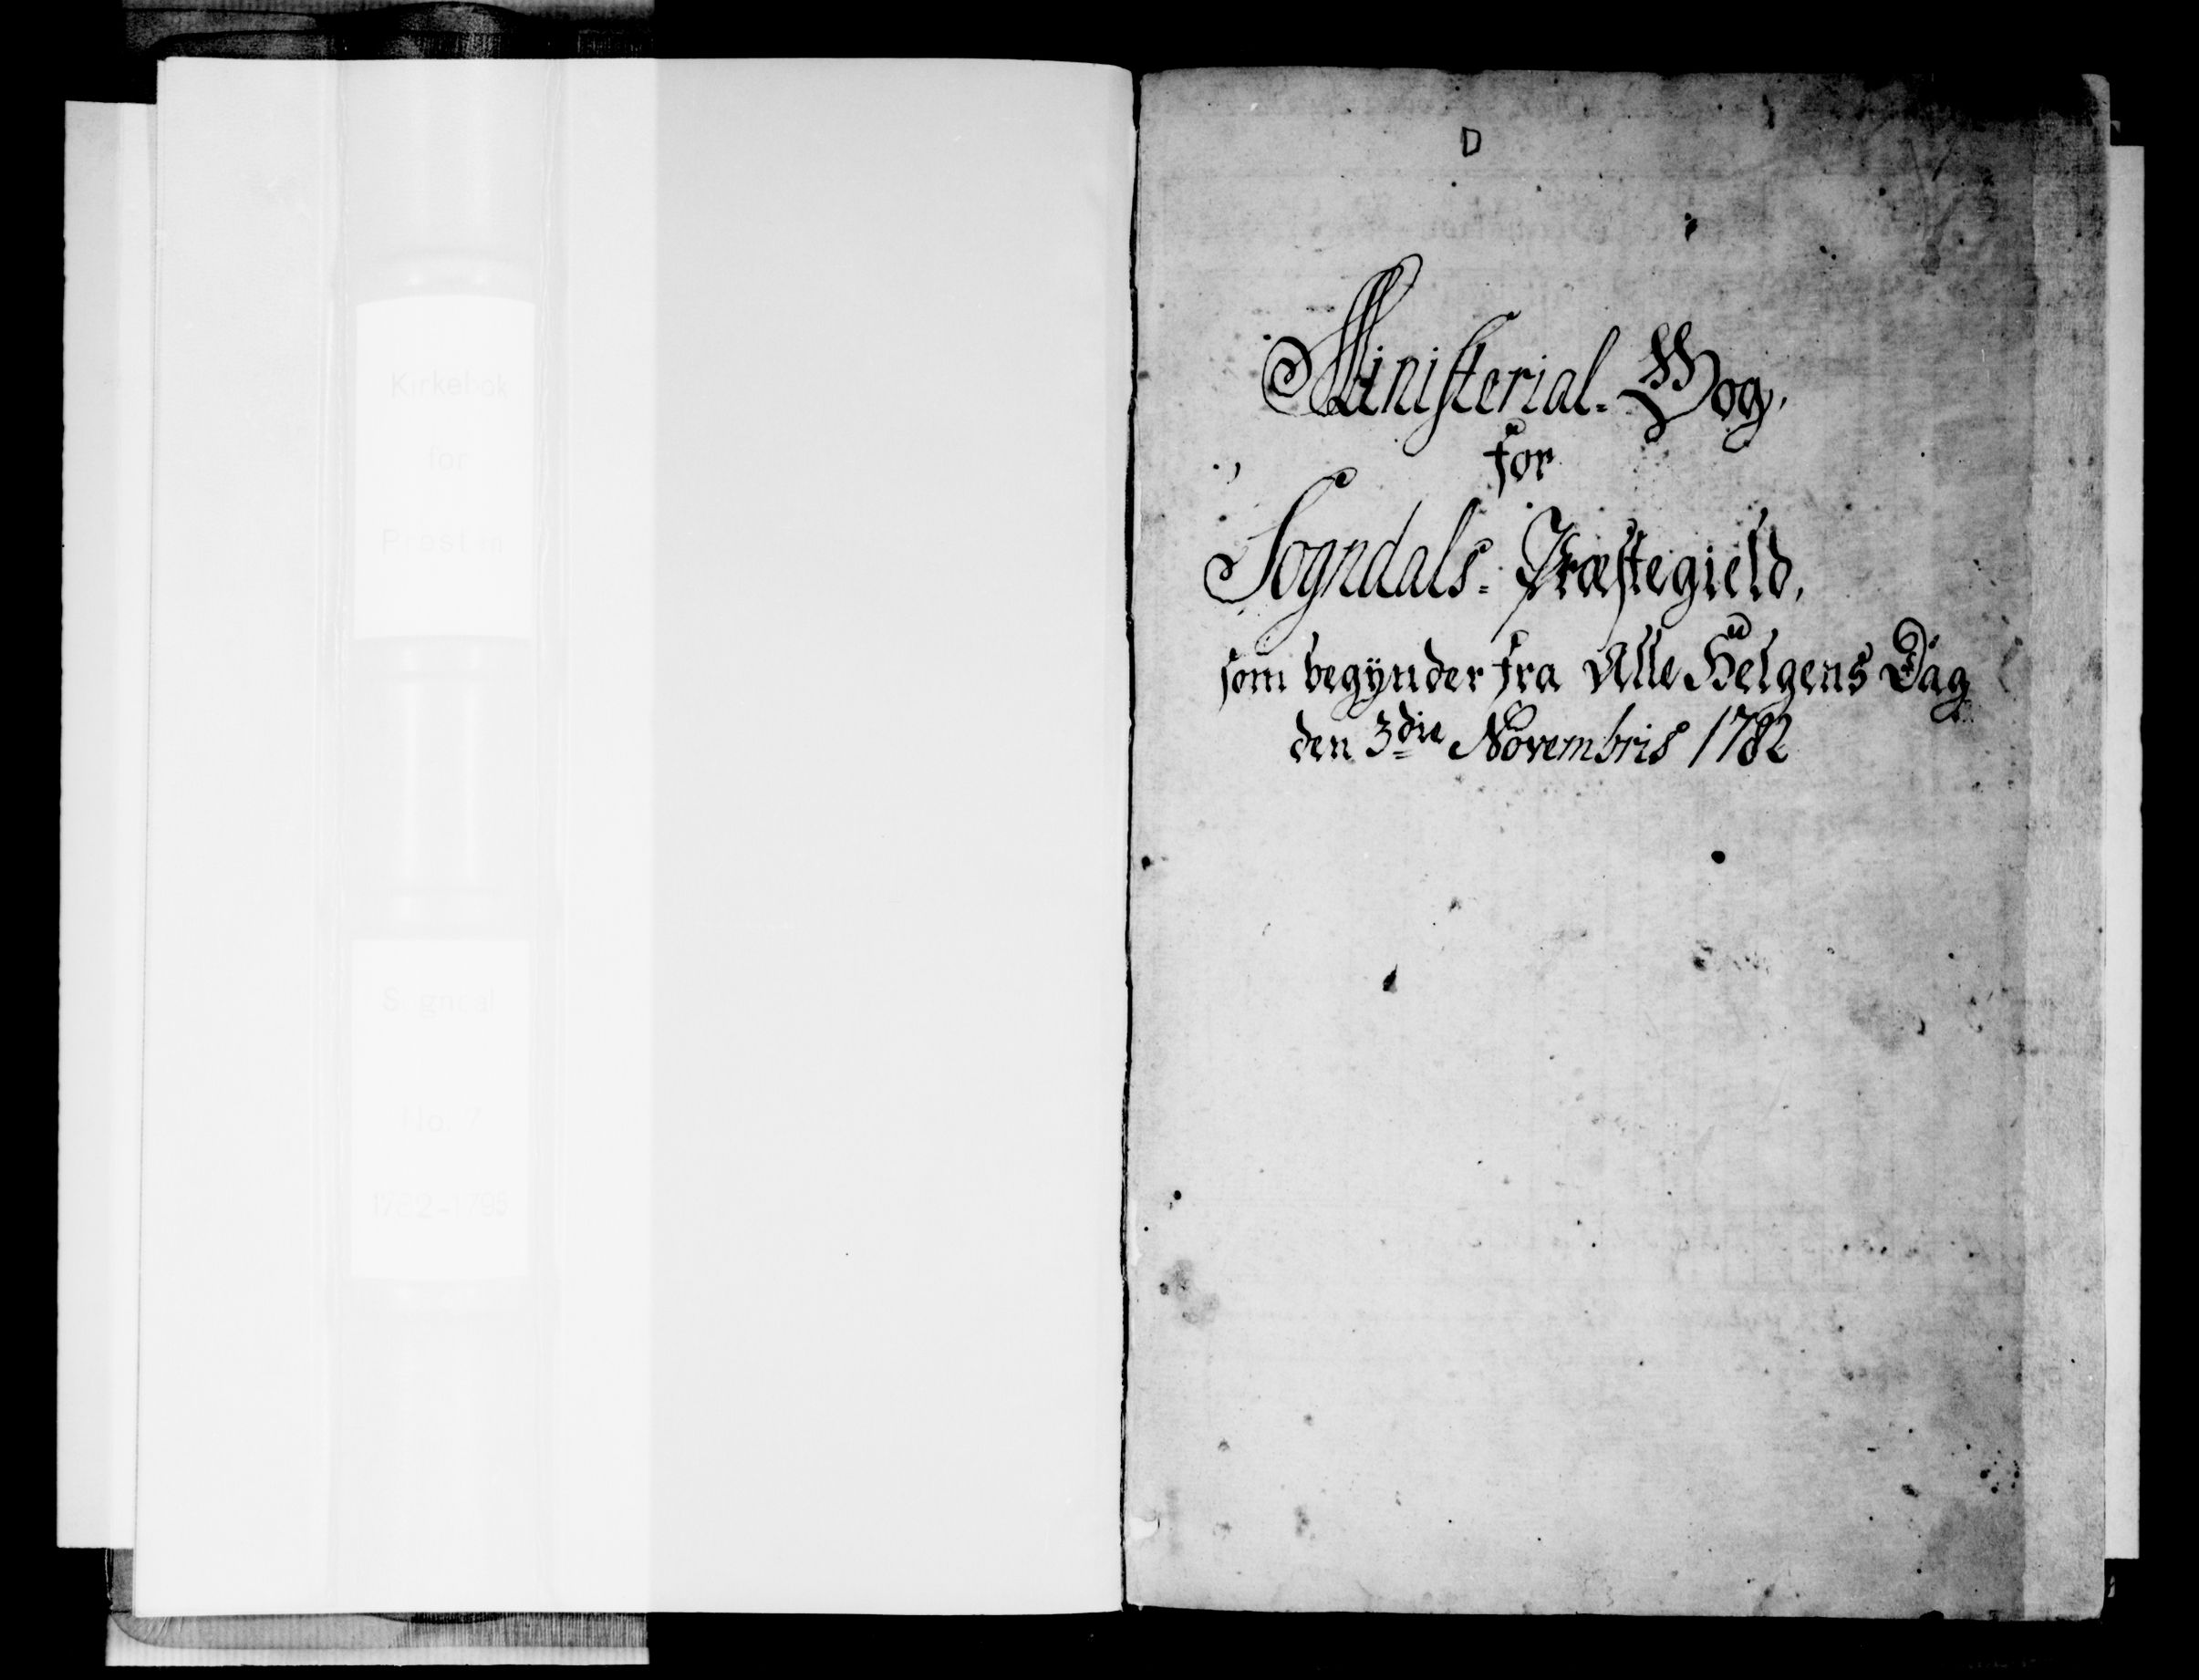 Kirkebok
for
Presten i
Sogndal
No. 7
D
Ministerial-Bog,
for
Sogndals- Præstegield,
som begynder fra Alle Helgens Dag
den 3die Novembris 1782